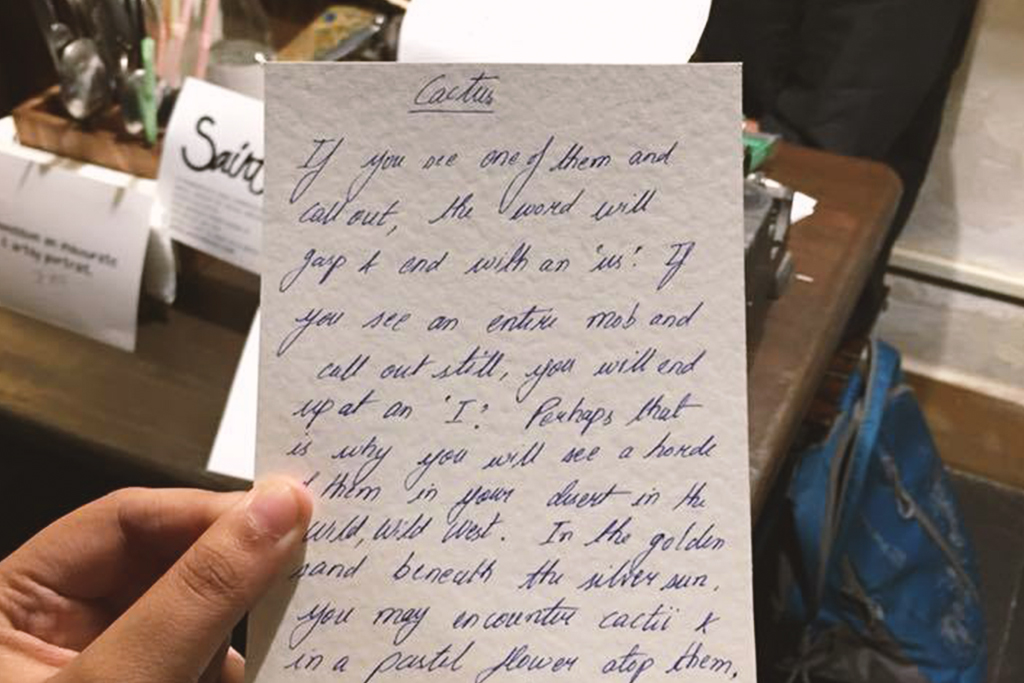 Cactus
If you see one of them and
call out, the word will
gasp & end with an 'us'. If
you see an entire mob and
call out still, you will end
up at an 'I'. Perhaps that
is why you will see a horde
them in your desert in the
wild, wild west. In the golden
sand beneath the silver sun,
you may encounter cactii &
in a pastel flower atop them,
Sain
portrait.